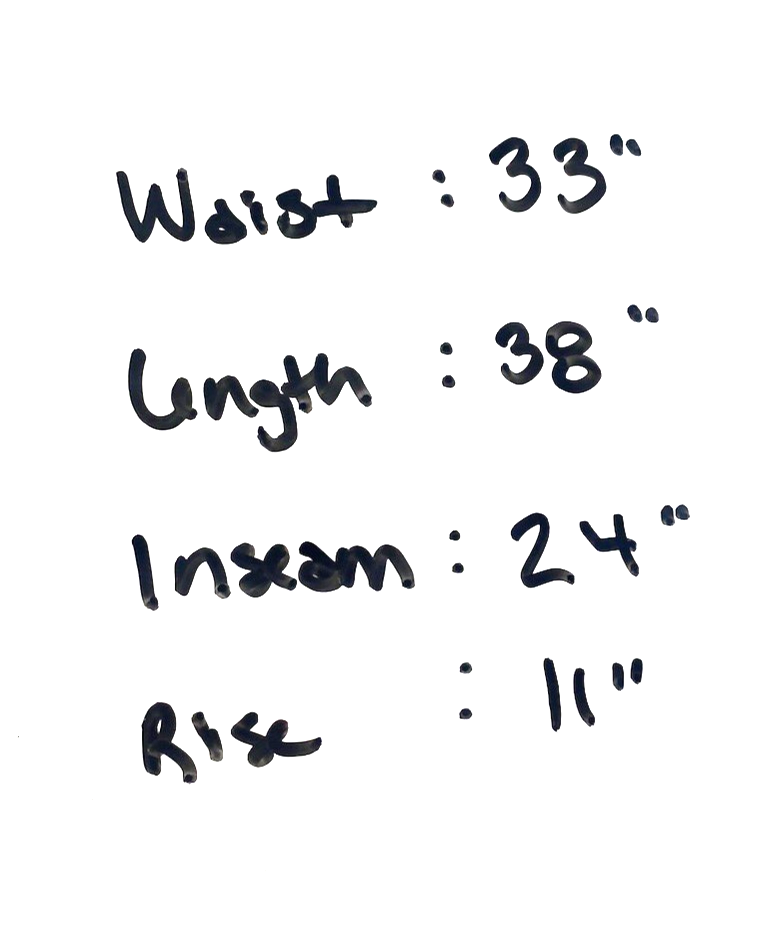 Waist : 33"
Length : 38"
Inseam : 24"
Rise : 11"